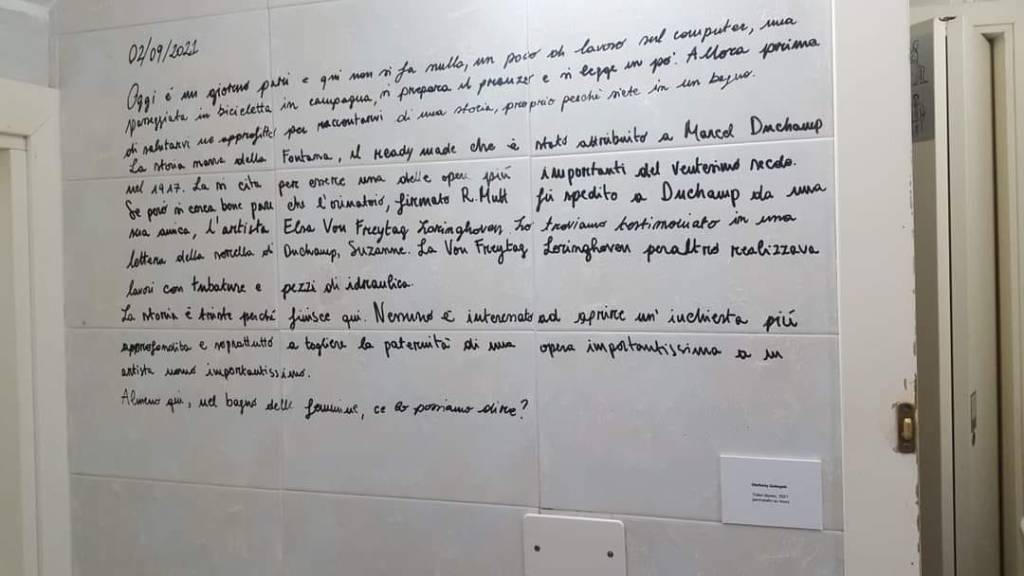 02/09/2021
Oggi è un giorno pari e qui non si fa nulla, un poco di lavoro sul computer, una
passeggiata in bicicletta in campagna, si prepara il pranzo e si legge un po'. Allora prima
di salutarvi ne approfitto per raccontarvi di una storia, proprio perché siete in un bagno.
La storia narra della Fontana, il ready made che è stato attribuito a Marcel Duchamp
nel 1917. La si cita per essere una delle opere più importanti del Ventesimo secolo.
Se però si cerca bene pare che l'orinatoio, firmato R. Mutt fu spedito a Duchamp da una
sua amica, l'artista Elsa Von Freytag Loringhoven. Lo troviamo testimoniato in una
lettera della sorella di Duchamp, Suzanne. La Von Freytag Loringhoven peraltro realizzava
lavori con tubature e pezzi di idraulica.
La storia è triste perché finisce qui. Nessuno è interessato ad aprire un'inchiesta più
approfondita e soprattutto a togliere la paternità di una opera importantissima a un
artista uomo importantissimo.
Almeno qui, nel bagno delle femmine, ce lo possiamo dire?
2021